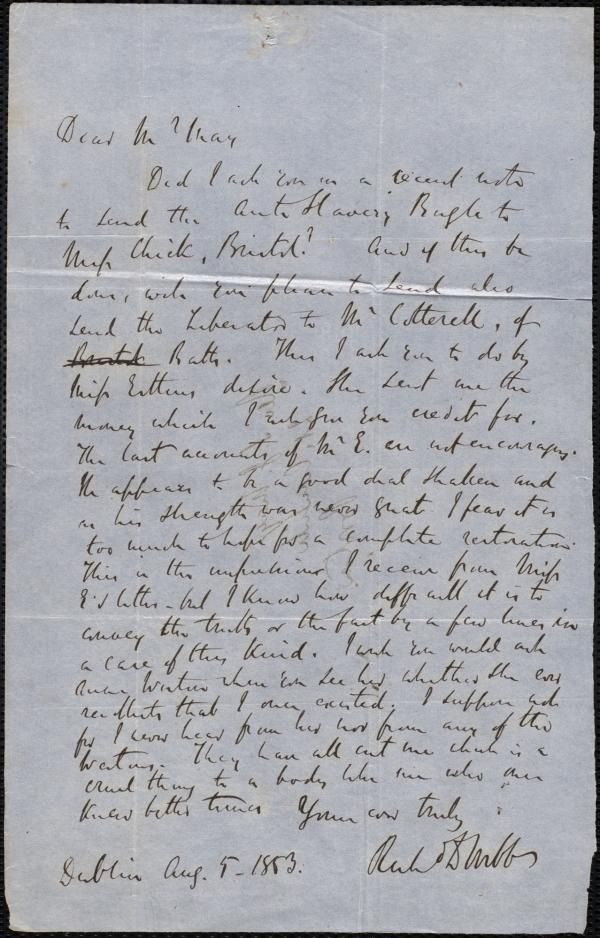 Dear Mr. May
Did I ask you in a recent note
to send the Anti Slavery Bugle to
Miss Chick, Bristol? And if this be
done, will you please to send also
send the Liberator to Mr Cotterell, of
Bristol Bath. This I ask you to do by
Miss Estlins desire. She sent me the
money which I will give you credit for.
The last accounts of Mr E. are not encouraging.
He appears to be a good deal shaken and
as his strength was never great I fear it is
too much to hope for a complete restoration.
This is the impression I receive from Miss
E's letters - but I know how difficult it is to
convey the truth or the fact by a few lines in
a case of this kind. I wish you would ask
Weston when you see her whether she ever
recollects that I once existed. I suppose not
for I never hear from her nor from any of the
Westons. They have all cut me which is a
cruel thing to a body like me who once
knew better times Yours ever truly
Dublin Aug. 5 - 1853. Richd D Webb